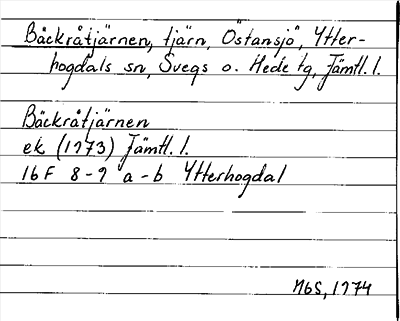 Bäckråtjärnen, tjärn, Östansjö, Ytter-
hogdals sn, Svegs o. Hede tg, Jämtl. l.
Bäckråtjärnen
ek (1973) Jämtl. l.
16F 8-9 a-b Ytterhogdal
MbS, 1974